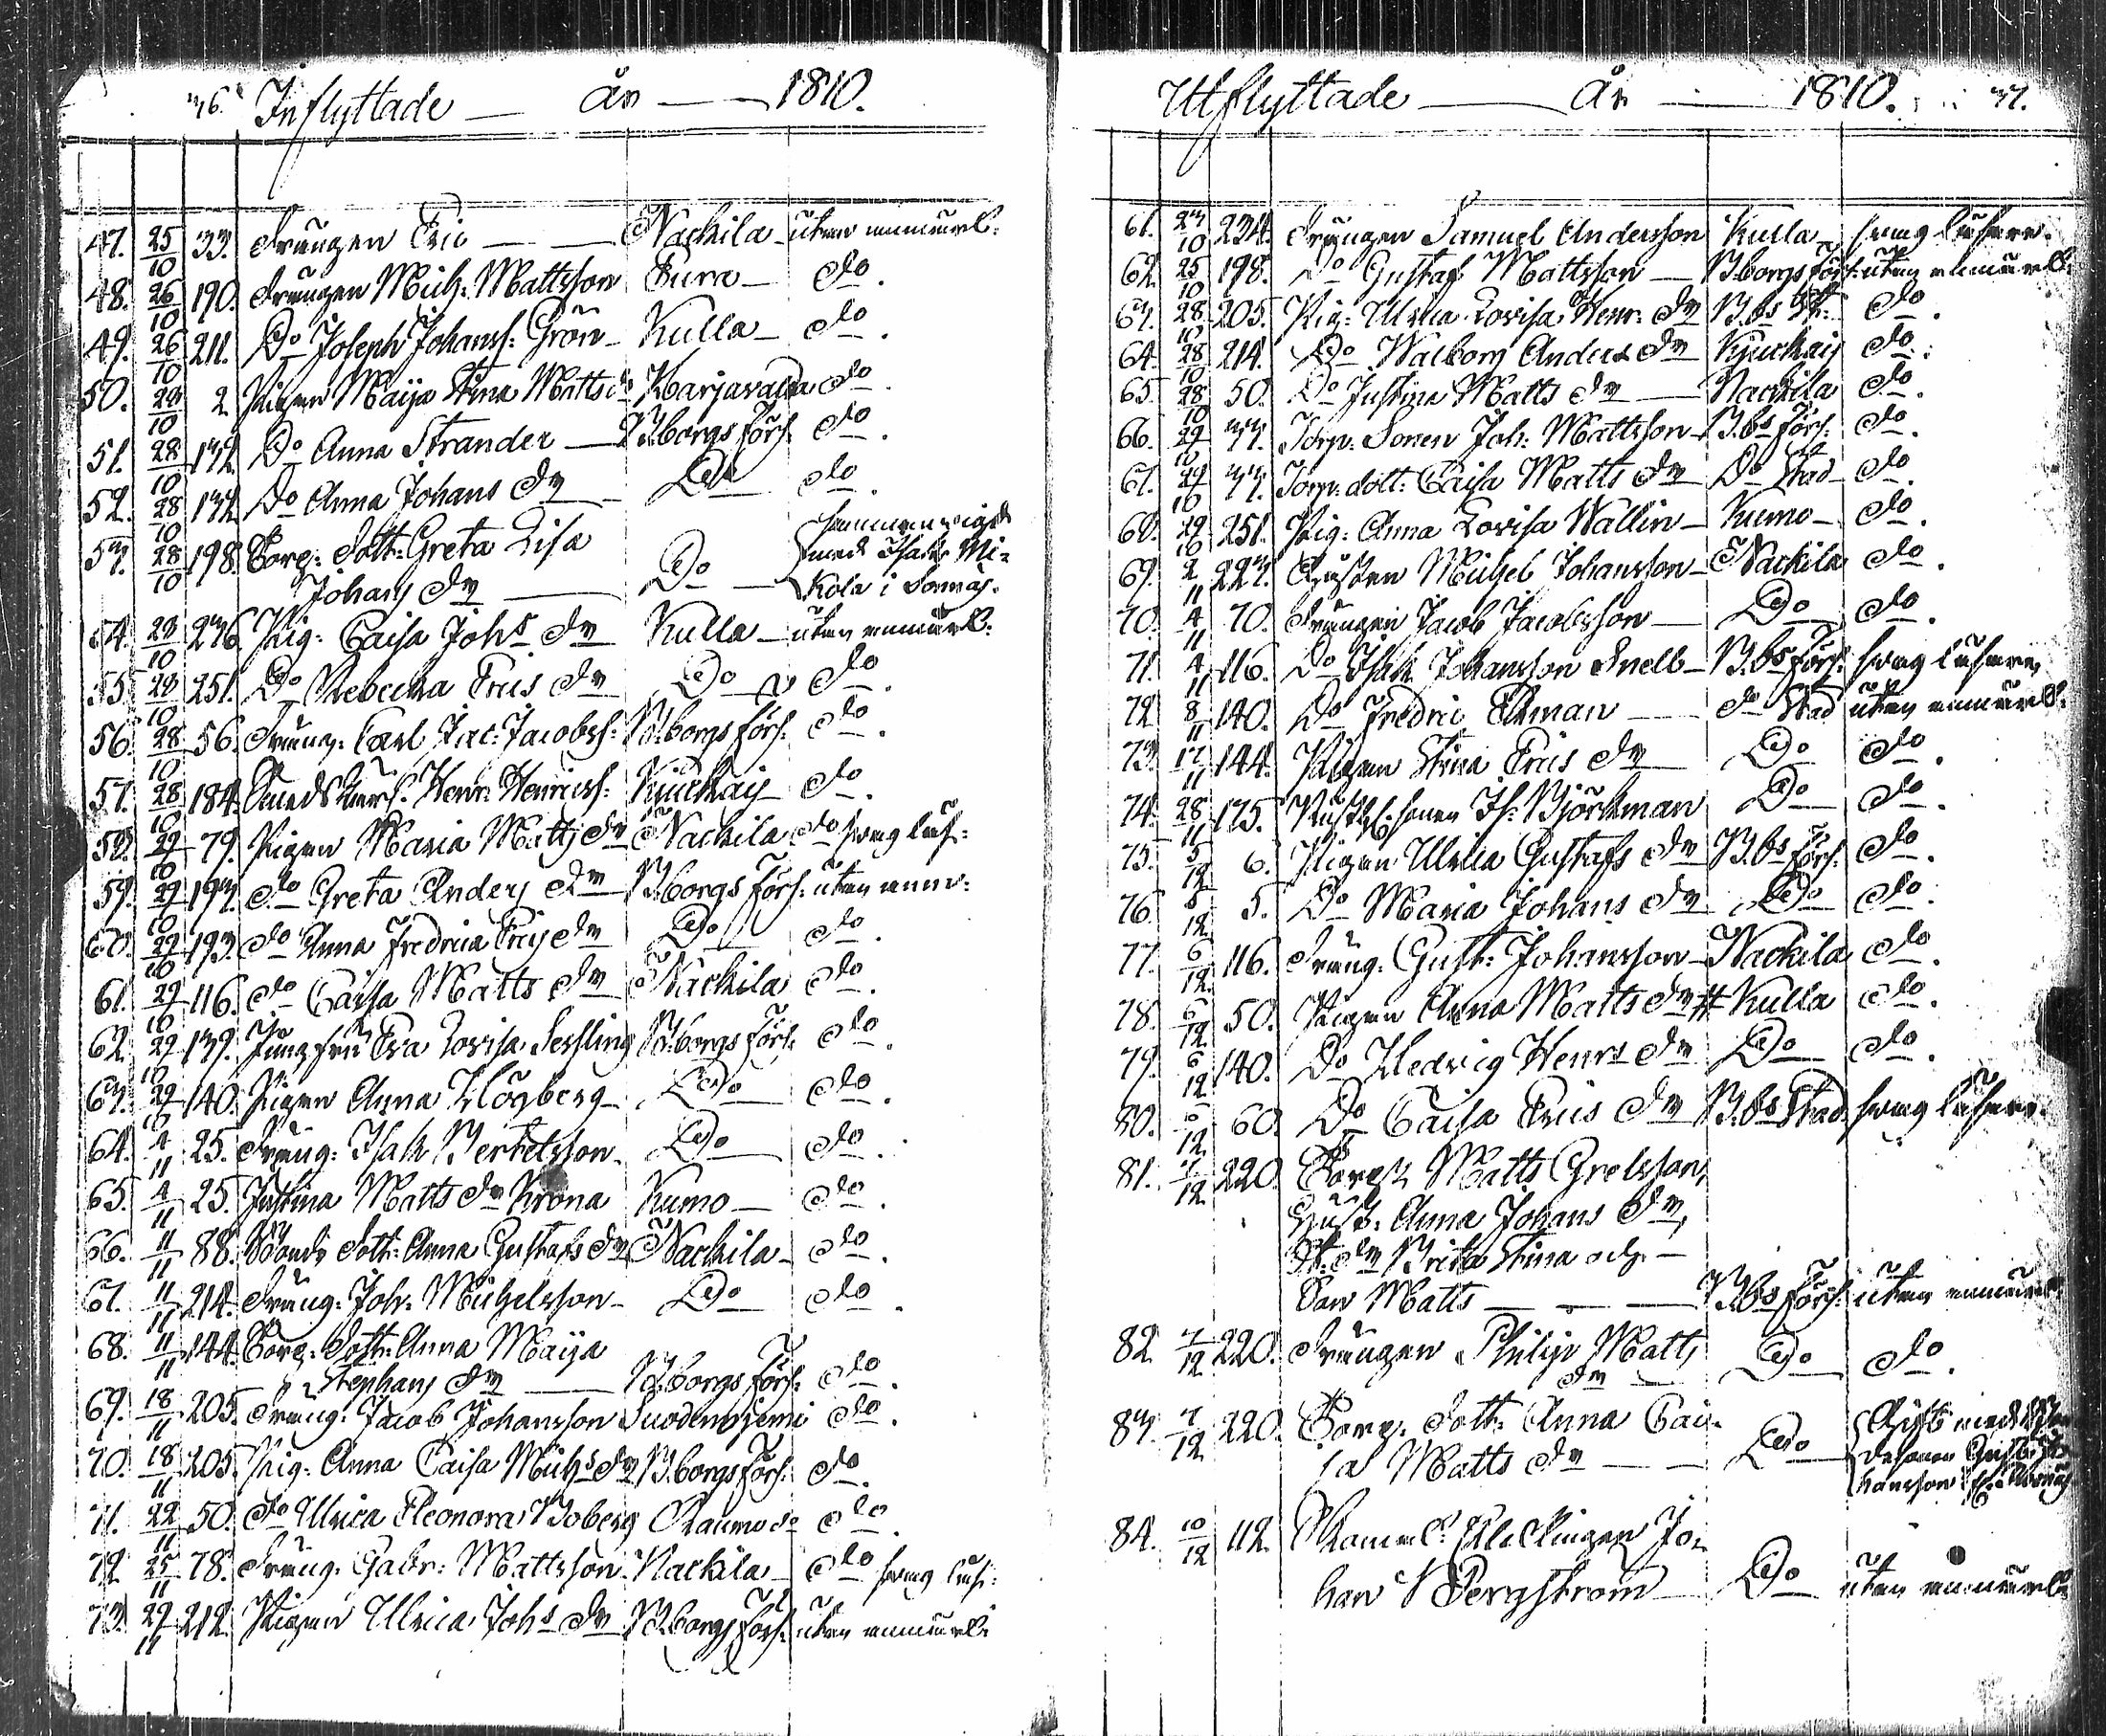 36. Inflyttade — år — 1810.
47. 25/10 33. Drängen Eric — Nackila — utan anmärk:
48. 26/10 190. Drängen Mich: Mattsson Eura — do.
49. 26/10 211. Do Joseph Johanss: Grön — Kulla — do.
50. 28/10 2 Pigan Maija Stina Matts dr Harjavalda do.
51. 28/10 132 Do Anna Strander — B:borgs förs: do.
52. 28/10 132 Do Anna Johans dr — Do — do.
53. 28/10 198. Torp: Dott: Greta Lisa
Johans dr — Do —
sammanvigd
med Isak Mi-
kola i
54. 28/10 236. Pig: Caisa Johs dr Kulla — utan anmärk:
55. 28/10 251. Do Rebecka Erics dr Do — do.
56. 28/10 56. Dräng: Carl Jac: Jacobss: B:borgs förs: do.
57. 28/10 184. Henr: Henricss: Kjuckais do.
58. 29/10 79. Pigan Maria Matts dr Nackila do svag läs:
59. 29/10 193. do Greta Anders dr B:borgs förs: utan anm:
60. 29/10 193. do Anna Fredrica Erics dr Do do.
61. 29/10 116. do Caisa Matts dr Nackila do.
62. 29/10 139. Jungfru Eva Lovisa Sessling B:borgs förs: do.
63. 29/10 140. Pigan Anna Högberg — Do do.
64. 4/11 25. Dräng: Isak Bertelsson — Do do.
65. 4/11 25. Justina Matts dr Krona Kumo — do.
66. 11/11 88. Bonde Dott: Anna Gustafs dr Nackila — do.
67. 11/11 214. Dräng: Joh: Michelsson — Do do.
68. 11/11 144. Torp: Dott: Anna Maija
Stephans dr — B:borgs förs: do.
69. 18/11 205. Dräng: Jacob Johansson Suodenniemi do.
70. 18/11 205. Pig: Anna Caisa Michs dr B:borgs förs: do.
71. 22/11 50. do Ulrica Eleonora Boberg Raumo do.
72. 25/11 78. Dräng: Gabr: Mattsson Nackila — do svag läs:
73. 29/11 212. Pigan Ulrica Johs dr B:borgs förs: utan anmärk:
Utflyttade — År — 1810. 37.
61. 23/10 234. Drängen Samuel Andersson Kulla svag läsare.
62. 25/10 198. Do Gustaf Mattsson — B:borgs förs: utan anmärk:
63. 28/10 205. Pig: Ulrica Lovisa Henr: dr B:bs do.
64. 28/10 214. Do Walborg Anders dr Kjuckais do.
65. 28/10 50. Do Justina Matts dr — Nackila do.
66. 29/10 33. Torp: Sonen Joh: Mattsson — B:bs förs: do.
67. 29/10 33. Torp: dott: Caisa Matts dr Do Stad — do.
68. 29/10 251. Pig: Anna Lovisa Wallin — Kumo — do.
69. 2/11 223. Michel Johansson — Nackila do.
70. 4/11 70. Drängen Jacob Jacobsson — Do do.
71. 4/11 116. Do Isak Johansson Snell — B:bs förs: svag läsare
72 8/11 140. Do Fredric Ekman — do Stad utan anmärk:
73. 17/11 144. Pigan Stina Erics dr — Do do.
74. 28/11 175. sonen Is: Björkman Do do.
75. 5/12 6. Pigan Ulrica Gustafs dr B:bs förs: do.
76. 5/12 5. Do Maria Johans dr Do do.
77. 6/12 116. Dräng: Gust: Johansson — Nackila do.
78. 6/12 50. Pigan Anna Matts dr # Kulla do.
79. 6/12 140. Do Hedvig Henrs dr Do do.
80. 6/12 60. Do Caisa Erics dr B:bs Stad svag läsare.
81. 7/12 220. Torp: Matts Grelsson,
Hust: Anna Johans dr,
dr Brita Stina och —
Son Matts — B:bs förs: utan anmärk:
82. 7/12 220. Drängen Philip Matts
dr — Do do.
83. 7/12 220. Torp: Dott: Anna Cai-
sa Matts dr — Do
Gift med
sonen Gust: Jo-
hansson
84. 10/12 112. Jo-
han Bergström — Do utan anmärk: